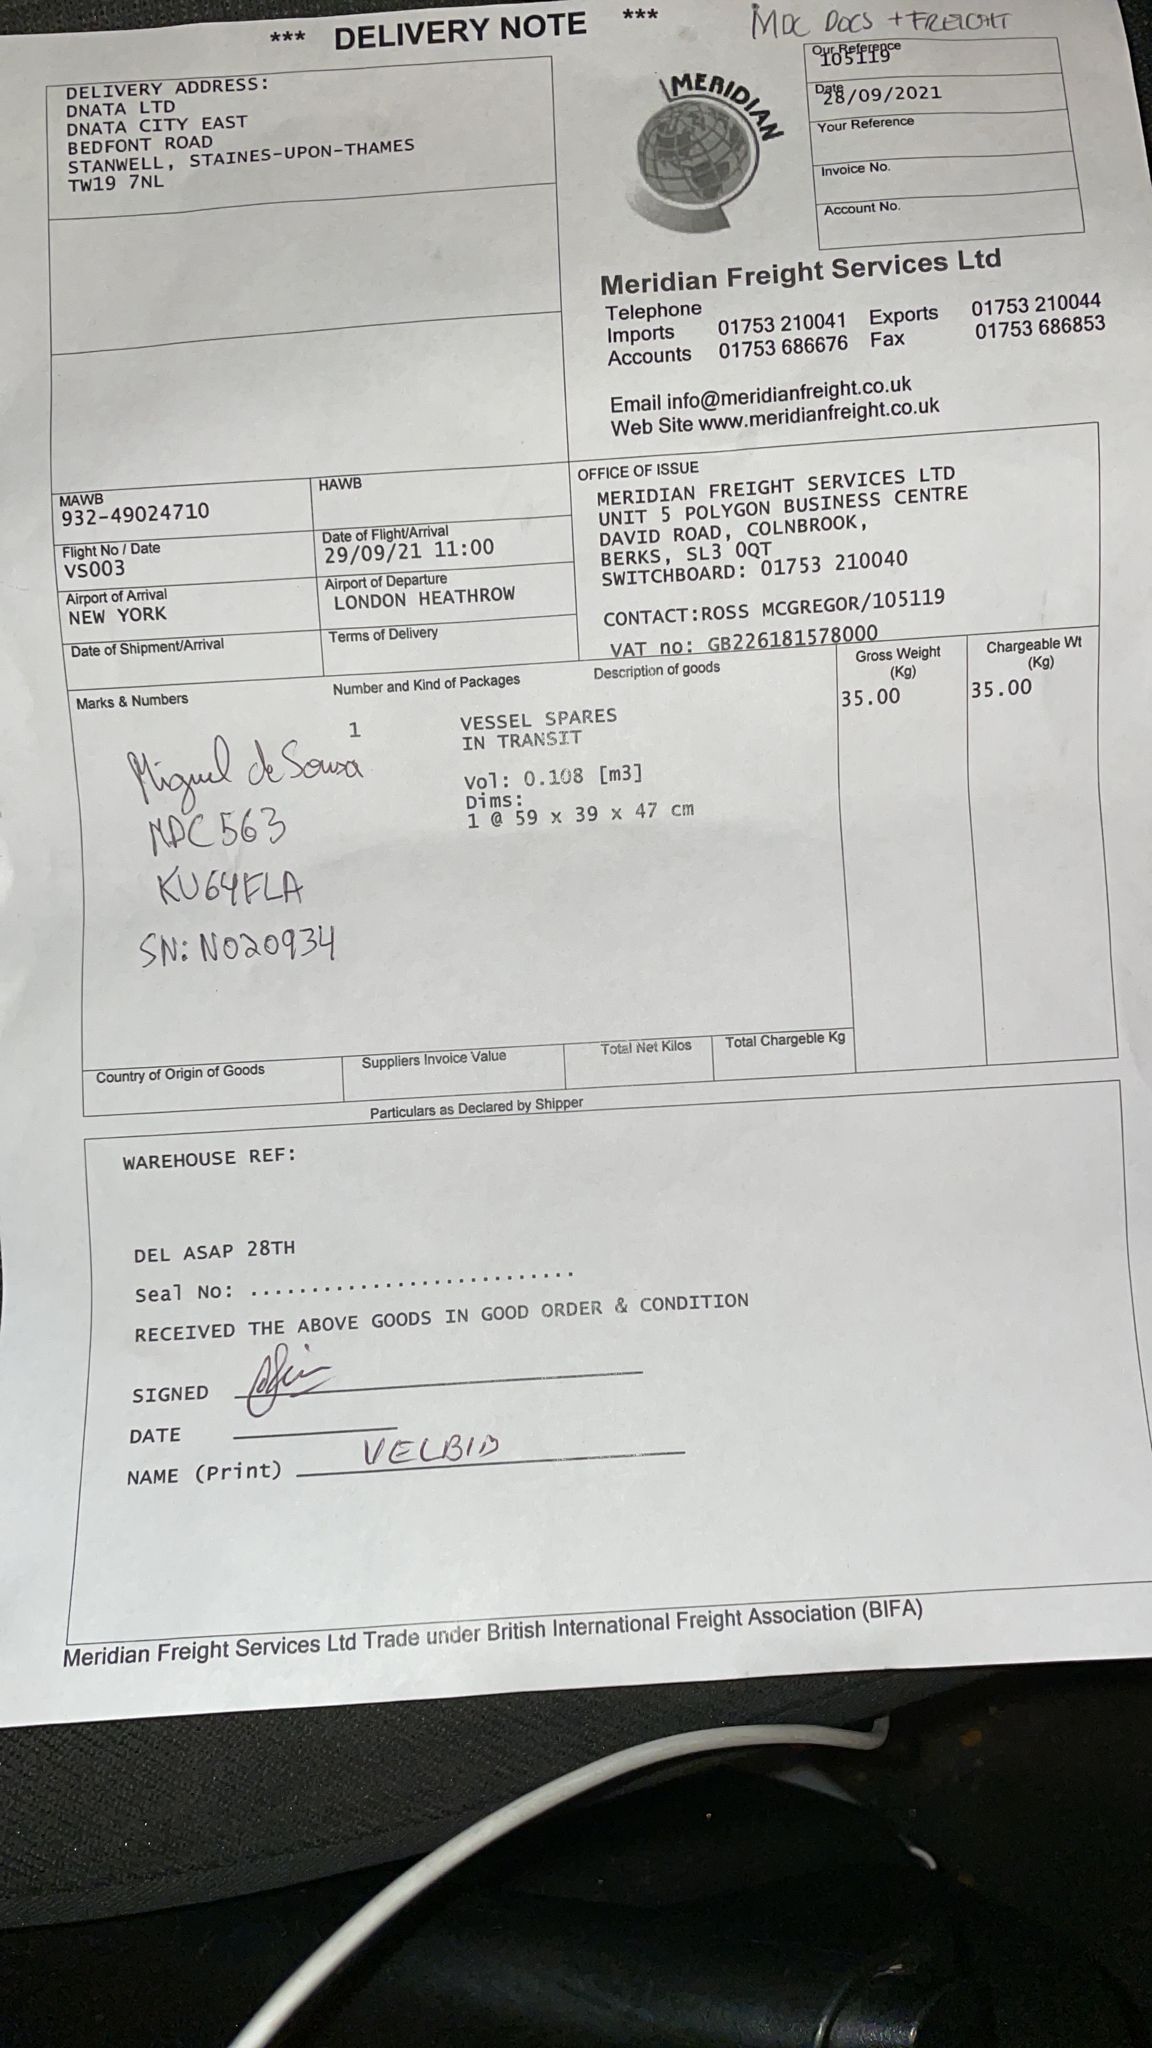 *** DELIVERY NOTE ***
MDC DOCS + FREIGHT
DELIVERY ADDRESS:
DNATA LTD
DNATA CITY EAST
BEDFONT ROAD
STANWELL, STAINES-UPON-THAMES
TW19 7NL
MERIDIAN
Our Reference
105119
Date
28/09/2021
Your Reference
Invoice No.
Account No.
Meridian Freight Services Ltd
Telephone
Imports 01753 210041 Exports 01753 210044
Accounts 01753 686676 Fax 01753 686853
Email info@meridianfreight.co.uk
Web Site www.meridianfreight.co.uk
MAWB
932-49024710
HAWB
Flight No / Date
VS003
Date of Flight/Arrival
29/09/21 11:00
Airport of Arrival
NEW YORK
Airport of Departure
LONDON HEATHROW
Date of Shipment/Arrival
Terms of Delivery
OFFICE OF ISSUE
MERIDIAN FREIGHT SERVICES LTD
UNIT 5 POLYGON BUSINESS CENTRE
DAVID ROAD, COLNBROOK,
BERKS, SL3 0QT
SWITCHBOARD: 01753 210040
CONTACT:ROSS MCGREGOR/105119
VAT no: GB226181578000
Marks & Numbers
Number and Kind of Packages
Description of goods
Gross Weight
(Kg)
Chargeable Wt
(Kg)
1
VESSEL SPARES
IN TRANSIT
35.00
35.00
Vol: 0.108 [m3]
Dims:
1 @ 59 x 39 x 47 cm
Miguel de Sousa
MDC563
KU64FLA
SN: N020934
Country of Origin of Goods
Suppliers Invoice Value
Total Net Kilos
Total Chargeble Kg
Particulars as Declared by Shipper
WAREHOUSE REF:
DEL ASAP 28TH
Seal No: ...........................
RECEIVED THE ABOVE GOODS IN GOOD ORDER & CONDITION
SIGNED
DATE
NAME (Print) VELBID
Meridian Freight Services Ltd Trade under British International Freight Association (BIFA)